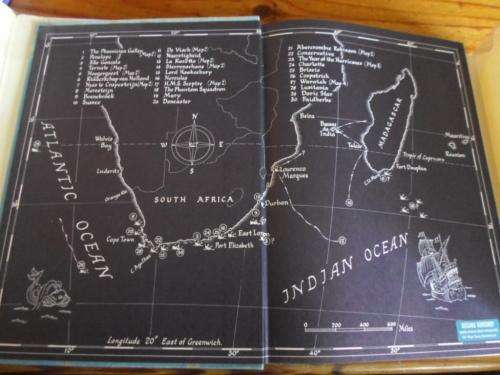 1 The Phoenician Galley
2 Penelope (Map 2)
3 São Gonzalo
4 Ternate (Map 2)
5 Hoogergeest (Map 2)
6 Ridderschap van Holland
8 Merestejn
9 Bennebroek
10 Sussex
11 De Visch (Map 2)
12 Naarstigheid
13 La Rozette (Map 2)
14 Sterrenschans (Map 2)
15 Lord Hawkesbury
16 Hercules
17 H.M.S. Sceptre (Map 2)
18 The Phantom Squadron
19 Mary
20 Doncaster
21 Abercrombie Robinson (Map 2)
22 Conservative
23 The Year of the Hurricanes (Map 2)
24 Charlotte
25 Briseis
26 Corpatrick
27 Waratah (Map 4)
28 Lusitania
29 Doric Star
30 Faidherbe
ATLANTIC
OCEAN
Walvis
Bay
Luderitz
Orange R.
N
W
E
S
SOUTH AFRICA
Cape Town
C. Agulhas
Port Elizabeth
East London
Durban
Lourenco
Marques
Beira
Bassas
da
India
Tulear
MADAGASCAR
Fort Dauphin
Tropic of Capricorn
Mauritius
Reunion
INDIAN OCEAN
0 200 400 600 Miles
Longitude 20° East of Greenwich.
10°
30°
40°
50°